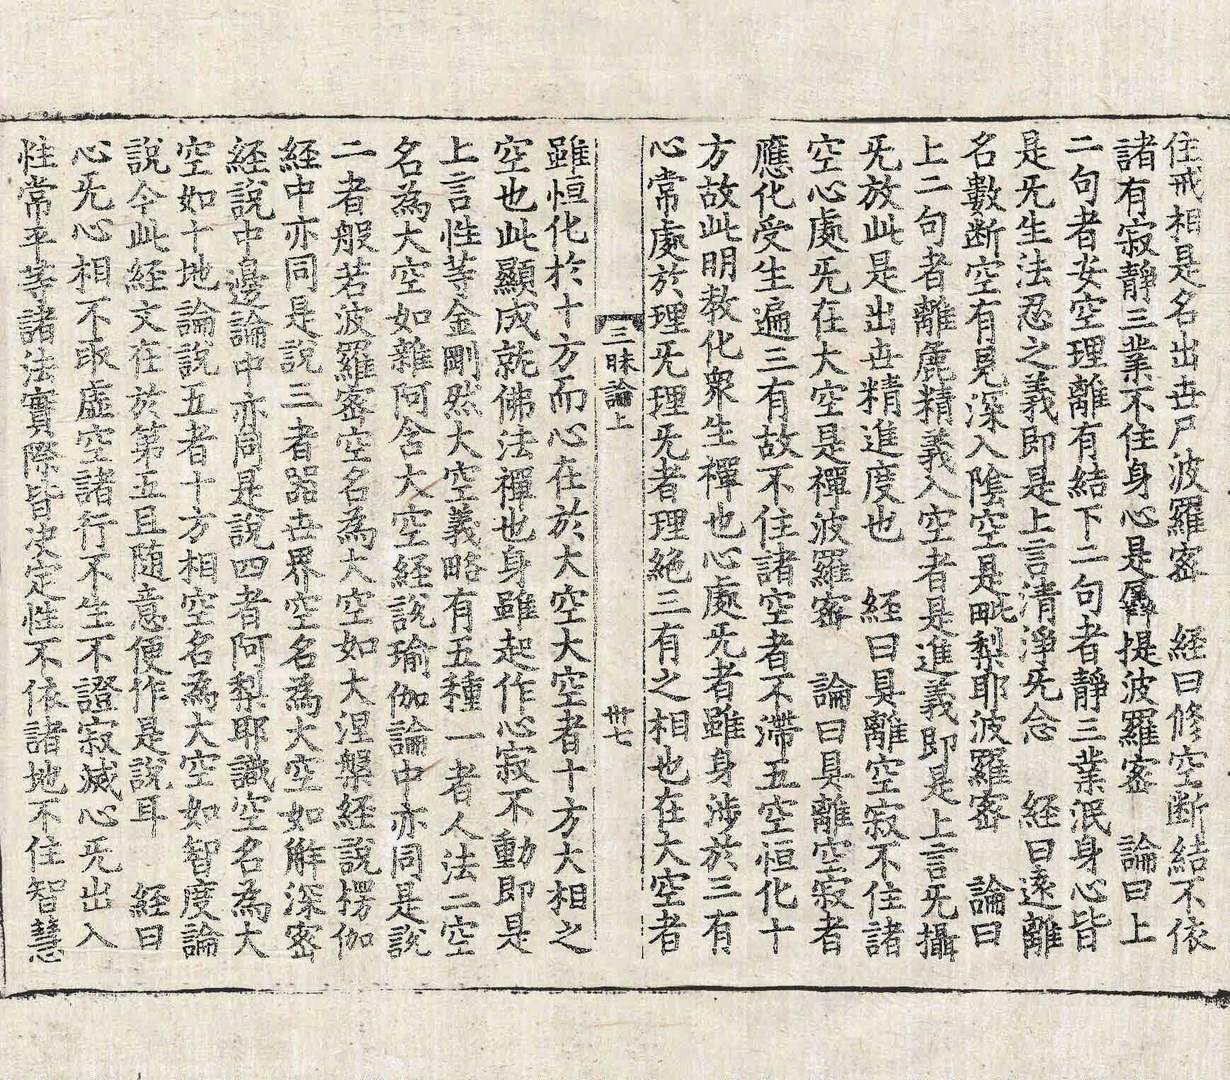 住戒相是名出世尸波羅密　經曰修空断結不依
諸有寂靜三業不住身心是羼提波羅密　論曰上
二句者安空理離有結下二句者靜三業泯身心皆
是旡生法忍之義即是上言清淨旡念　經曰遠離
名數断空有見深入陰空是毗梨耶波羅密　論曰
上二句者離麁精義入空者是進義即是上言旡攝
旡放此是出世精進度也　經曰具離空寂不住諸
空心處旡在大空是禪波羅密　論曰具離空寂者
應化受生遍三有故不住諸空者不滯五空恒化十
方故此明教化衆生禪也心處旡者雖身涉於三有
心常處於理旡理旡者理絶三有之相也在大空者
三昧論上　卅七
雖恒化於十方而心在於大空大空者十方大相之
空也此顯成就佛法禪也身雖起作心寂不動即是
上言性等金剛然大空義略有五種一者人法二空
名為大空如雜阿含大空經說瑜伽論中亦同是說
二者般若波羅密空名為大空如大涅槃經說楞伽
經中亦同是說三者器世界空名為大空如解深密
経說中邊論中亦同是說四者阿梨耶識空名為大
空如十地論說五者十方相空名為大空如智度論
說今此経文在於第五且随意便作是說耳　経曰
心旡心相不取虛空諸行不生不證寂滅心旡出入
性常平等諸法實際皆決定性不依諸地不住智慧